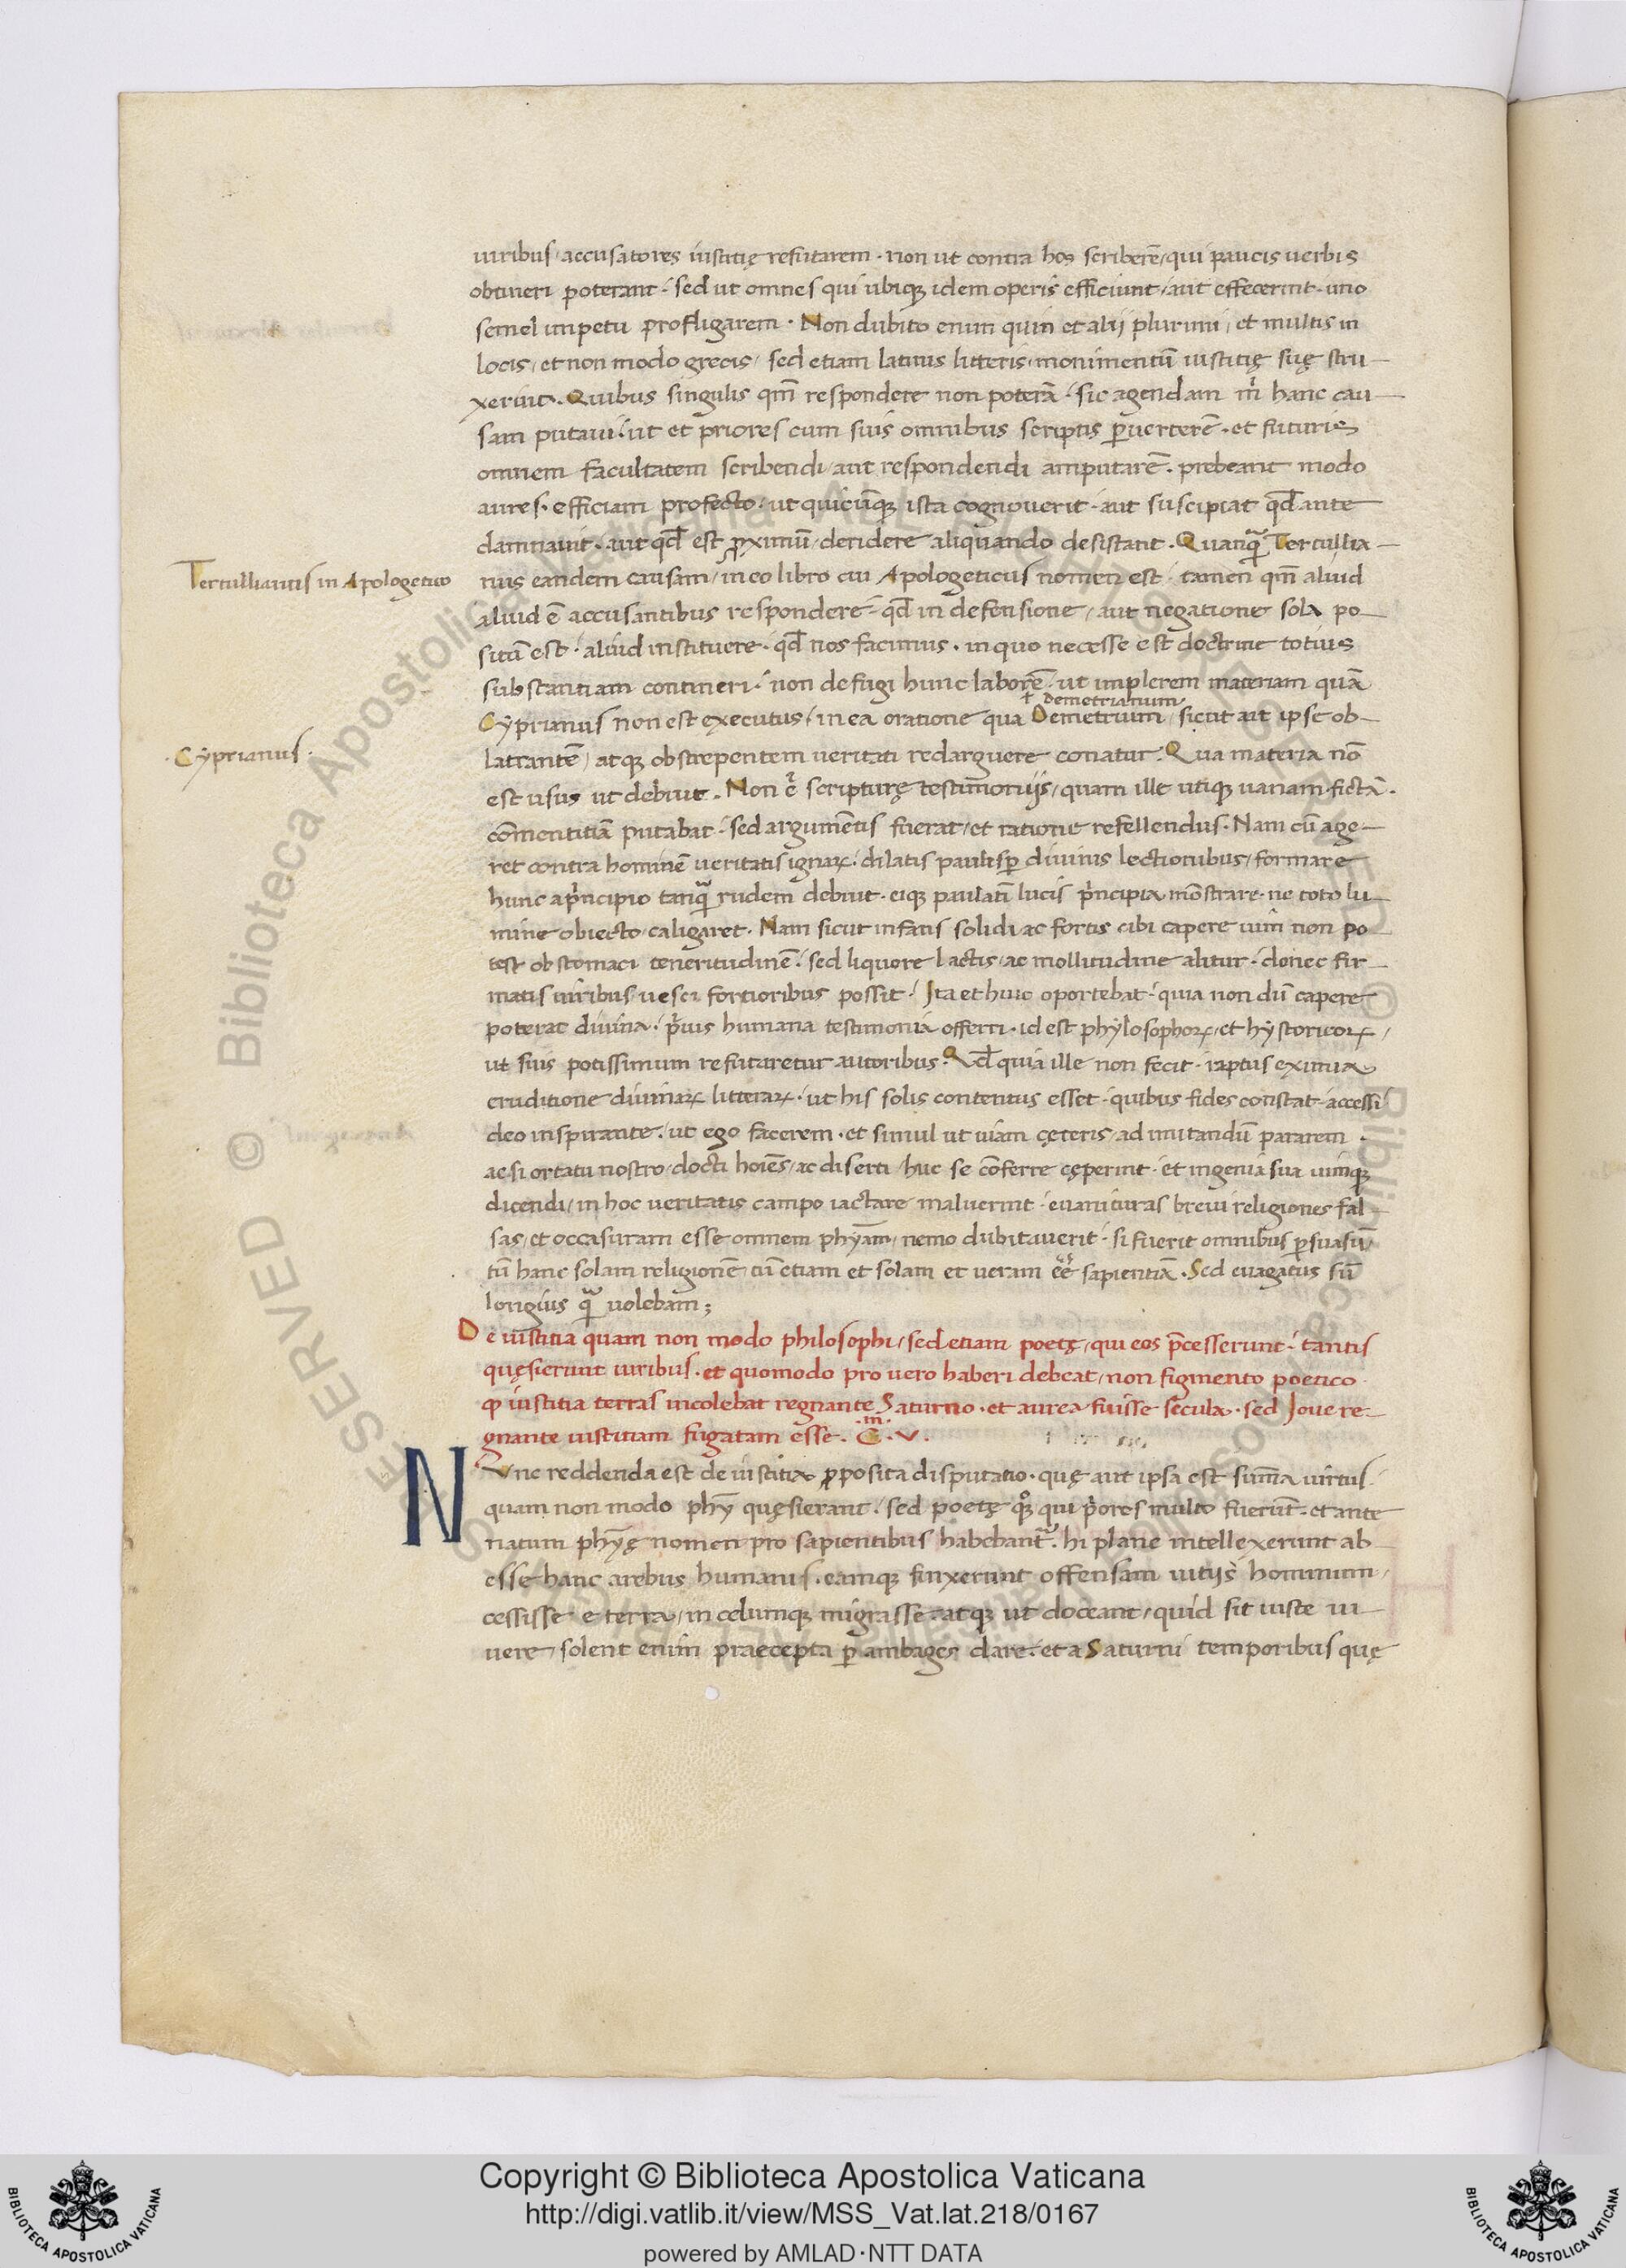 uiribus / accusatores iustitię refutarem · non ut contra hos scriberē / qui paucis uerbis
obtineri poterant · sed ut omnes qui ubiqꝫ idem operis efficiunt / aut effecerunt · uno
semel impetu profligarem · Non dubito enim quin et alij plurimi / et multis in
locis / et non modo grecis / sed etiam latinis litteris · monimentū iustitię suę stru-
xerint. Quibus singulis qm̄ respondere non poterā · sic agendam m̄ hanc cau-
sam putaui · ut et priores cum suis omnibus scriptis ꝑuerterē · et futuris
omnem facultatem scribendi / aut respondendi amputarē · prebeant modo
aures · efficiam profecto · ut quicūqꝫ ista cognouerit · aut suscipiat qđ ante
damnauit · aut qđ est ꝓximū / deridere aliquando desistant · Quanqꝫ Tertullia-
Tertullianus in Apologetico
nus eandem causam / in eo libro cui Apologeticus nomen est · tamen qm̄ aliud
aliud ē accusantibus respondere · qđ in defensione / aut negatione sola po-
situ̅ est · aliud instituere · qđ nos facimus · in quo necesse est doctrine totius
substantiam contineri · non defugi hunc laborē · ut implerem materiam quā
† Demetrianum
Cyprianus non est executus / in ea oratione qua Demetrium / sicut ait ipse ob-
·Cyprianus·
latrantē / atqꝫ obstrepentem ueritati redarguere conatur · Qua materia nō
est usus ut debuit · Non ē scripturę testimonijs / quam ille utiqꝫ uanam · fictā ·
cōmentitiā putabat · sed argumētis fuerat / et ratione refellendus · Nam cū age-
ret contra hominē ueritatis ignarꝝ · dilatis paulisꝑ diuinis lectionibus / formare
hunc a pͥncipio tanqꝫ rudem debuit · eiqꝫ paulatī lucis pͥncipia mōstrare · ne toto lu-
mine obiecto / caligaret · Nam sicut infans solidi ac fortis cibi capere uim non po-
test ob stomaci teneritudinē · sed liquore lactis / ac mollitudine alitur · donec fir-
matis uiribus uesci fortioribus possit · Ita et huic oportebat · quia non dū capere
poterat diuina · pͥus humana testimonia offerri · id est phylosophorꝝ / et hystoricorꝝ /
ut suis potissimum refutaretur autoribus · Qđ quia ille non fecit · raptus eximia
eruditione diuinarꝝ litterarꝝ · ut his solis contentus esset · quibus fides constat · accessi
deo inspirante · ut ego facerem · et simul ut uiam cęteris / ad imitandū pararem ·
ac si ortatu nostro / docti hoīes / ac diserti / huc se cōferre cęperint · et ingenia sua uimqꝫ
dicendi / in hoc ueritatis campo iactare maluerint · euanituras breui religiones fal-
sas / et occasuram esse omnem phy̅am / nemo dubitauerit · si fuerit omnibus ꝑsuasū /
tū hanc solam religionē / cū etiam et solam et ueram ēē sapientiā · Sed euagatus sū
longius qꝫ uolebam ;
De iustitia quam non modo philosophi / sed etiam poetę / qui eos p̄cesserunt · tantis
quęsierunt uiribus · et quomodo pro uero haberi debeat / non figmento poetico
ꝙ iustitia terras incolebat regnante Saturno · et aurea fuisse secula · sed Ioue re-
gnante iustitiam fugatam esse · C · v · m
Nunc reddenda est de iustitia ꝓposita disputatio · quę aut ipsa est sūma uirtus ·
quam non modo phy̅ quęsierant · sed poetę qͦqꝫ qui pͥores multo fuerūt · et ante
natum phy̅ę nomen pro sapientibus habebant · hi plane intellexerunt ab-
esse hanc a rebus humanis · eamqꝫ finxerunt offensam uitijs hominum /
cessisse e terra / in celumqꝫ migrasse · atqꝫ ut doceant / quid sit iuste ui-
uere / solent enim praecepta ꝑ ambages dare · et a Saturni temporibus quę
© Biblioteca Apostolica Vaticana ALL RIGHTS RESERVED
Copyright © Biblioteca Apostolica Vaticana
http://digi.vatlib.it/view/MSS_Vat.lat.218/0167
powered by AMLAD·NTT DATA
BIBLIOTECA APOSTOLICA VATICANA
BIBLIOTECA APOSTOLICA VATICANA